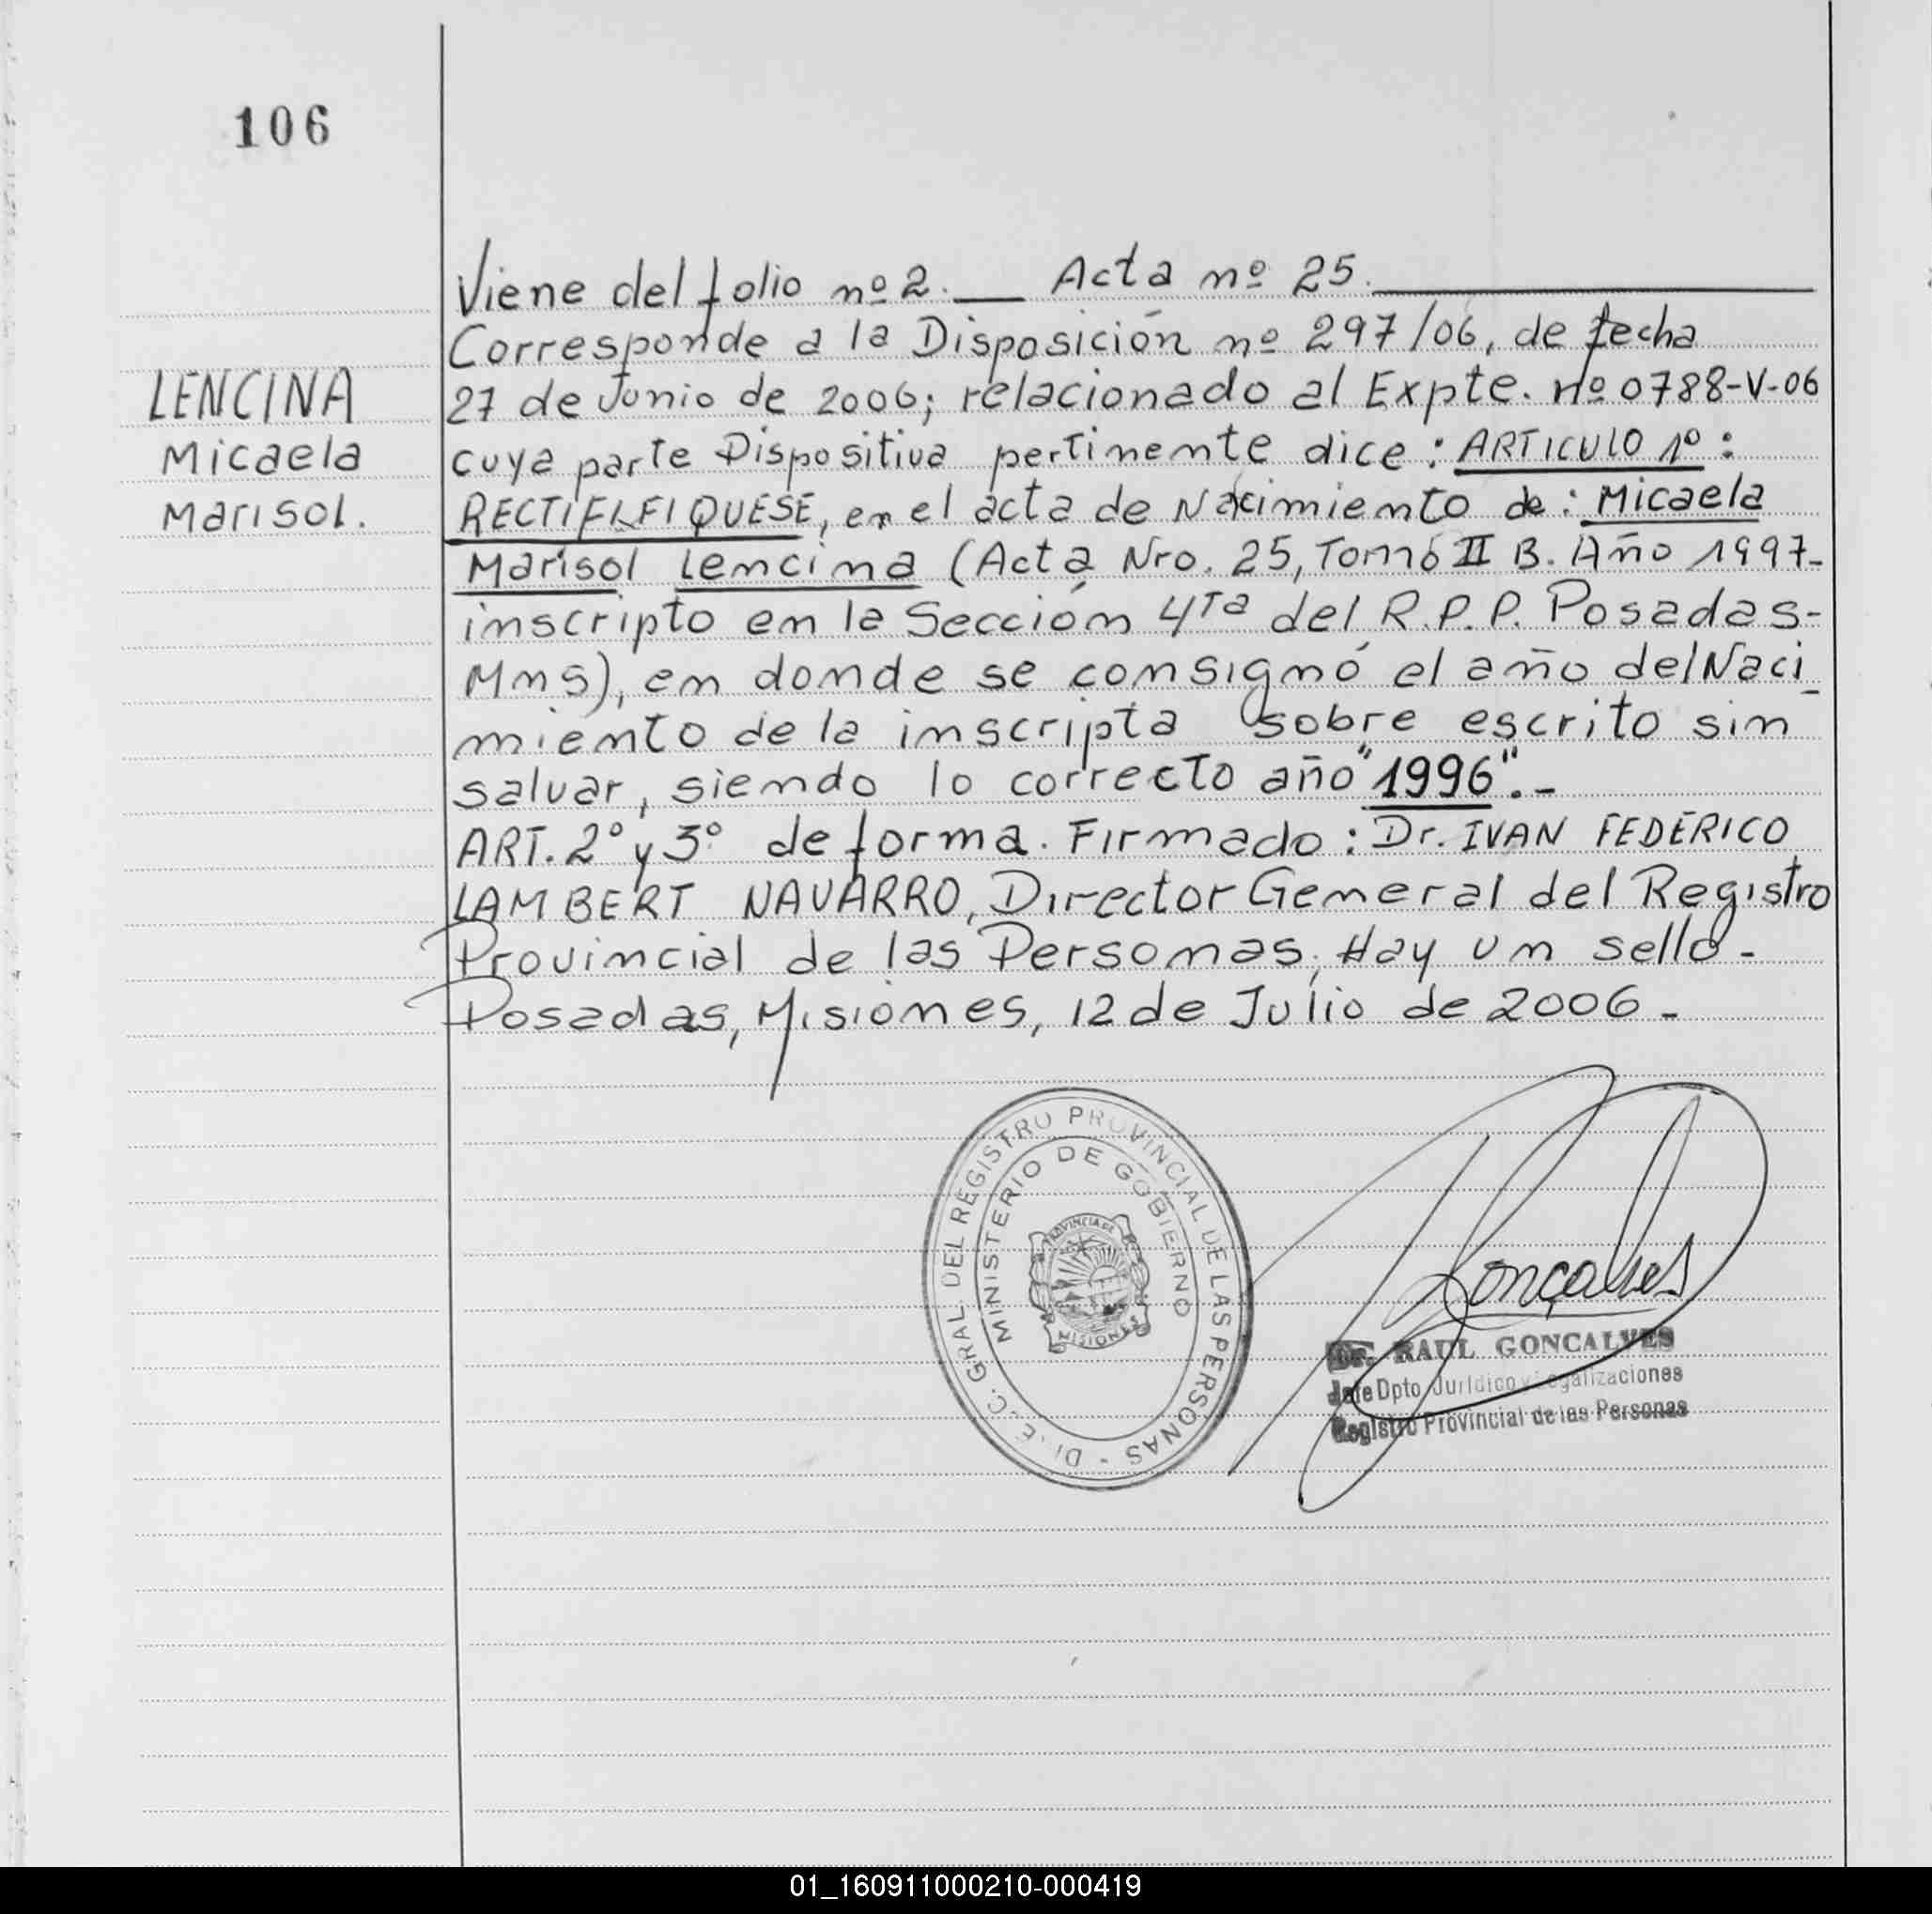 106
Viene del folio nº 2. — Acta nº 25.
Corresponde a la Disposición nº 297/06, de fecha
LENCINA
27 de Junio de 2006; relacionado al Expte. nº 0788-V-06
Micaela
cuya parte Dispositiva pertinente dice: ARTICULO 1º:
Marisol.
RECTIFIFIQUESE, en el acta de Nacimiento de: Micaela
Marisol Lencina (Acta Nro. 25, Tomo II B. Año 1997-
inscripto en la Sección 4Ta del R.P.P. Posadas-
Mns), en donde se consignó el año del Naci_
miento de la inscripta sobre escrito sin
salvar, siendo lo correcto año "1996".-
ART. 2º y 3º de forma. Firmado: Dr. IVAN FEDERICO
LAMBERT NAVARRO, Director General del Registro
Provincial de las Personas, Hay un sello-
Posadas, Misiones, 12 de Julio de 2006-
GRAL. DEL REGISTRO PROVINCIAL DE LAS PERSONAS
MINISTERIO DE GOBIERNO
PROVINCIA DE
MISIONES
Gonçalves
Dr. RAUL GONCALVES
Jefe Dpto. Jurídico y Legalizaciones
Registro Provincial de las Personas
01_160911000210-000419